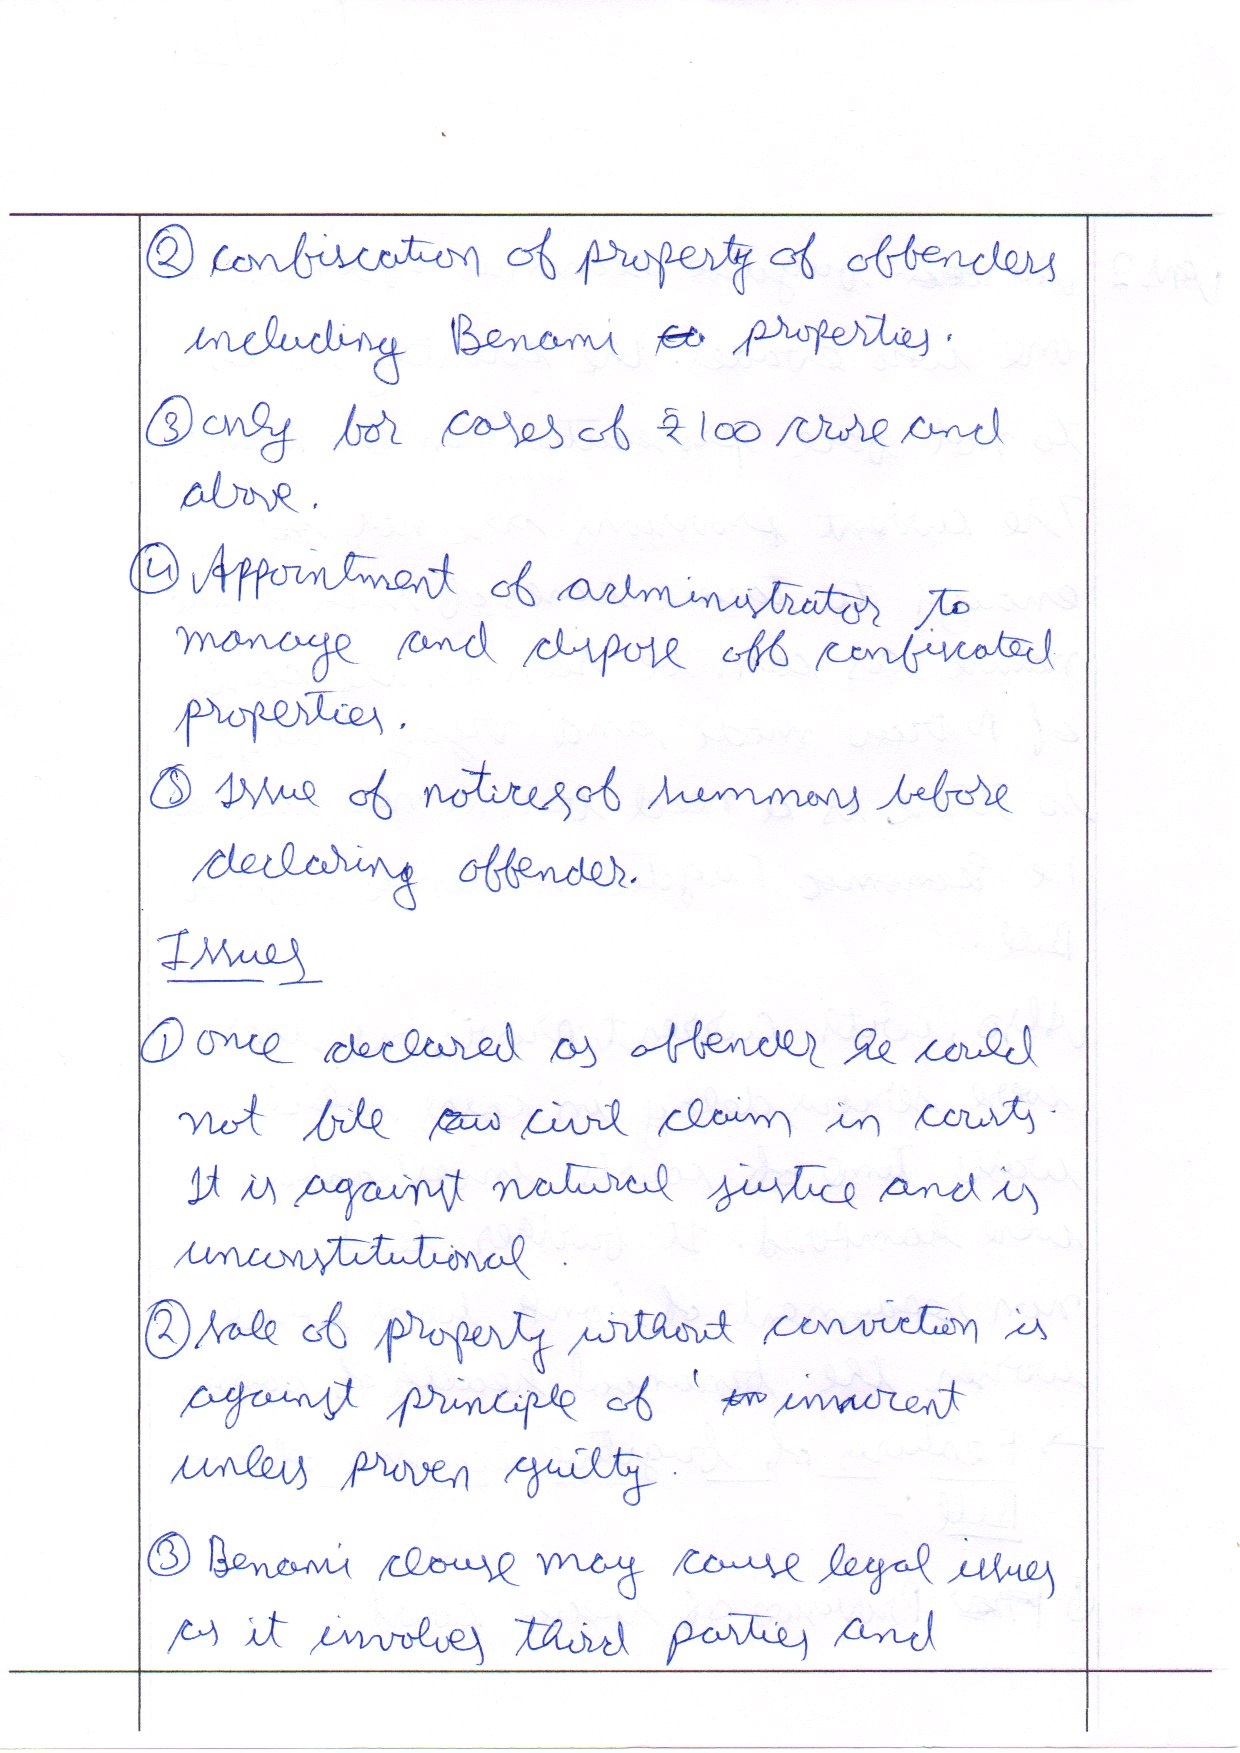 ② confiscation of property of offenders
including Benami properties.
③ only for cases of ₹100 crore and
above.
④ Appointment of administrator to
manage and dispose off confiscated
properties.
⑤ Issue of notices of summons before
declaring offender.
Issues
① once declared as offender he could
not file civil claim in courts.
It is against natural justice and is
unconstitutional.
② sale of property without conviction is
against principle of ' innocent
unless proven guilty.
③ Benami clause may cause legal issues
as it involves third parties and